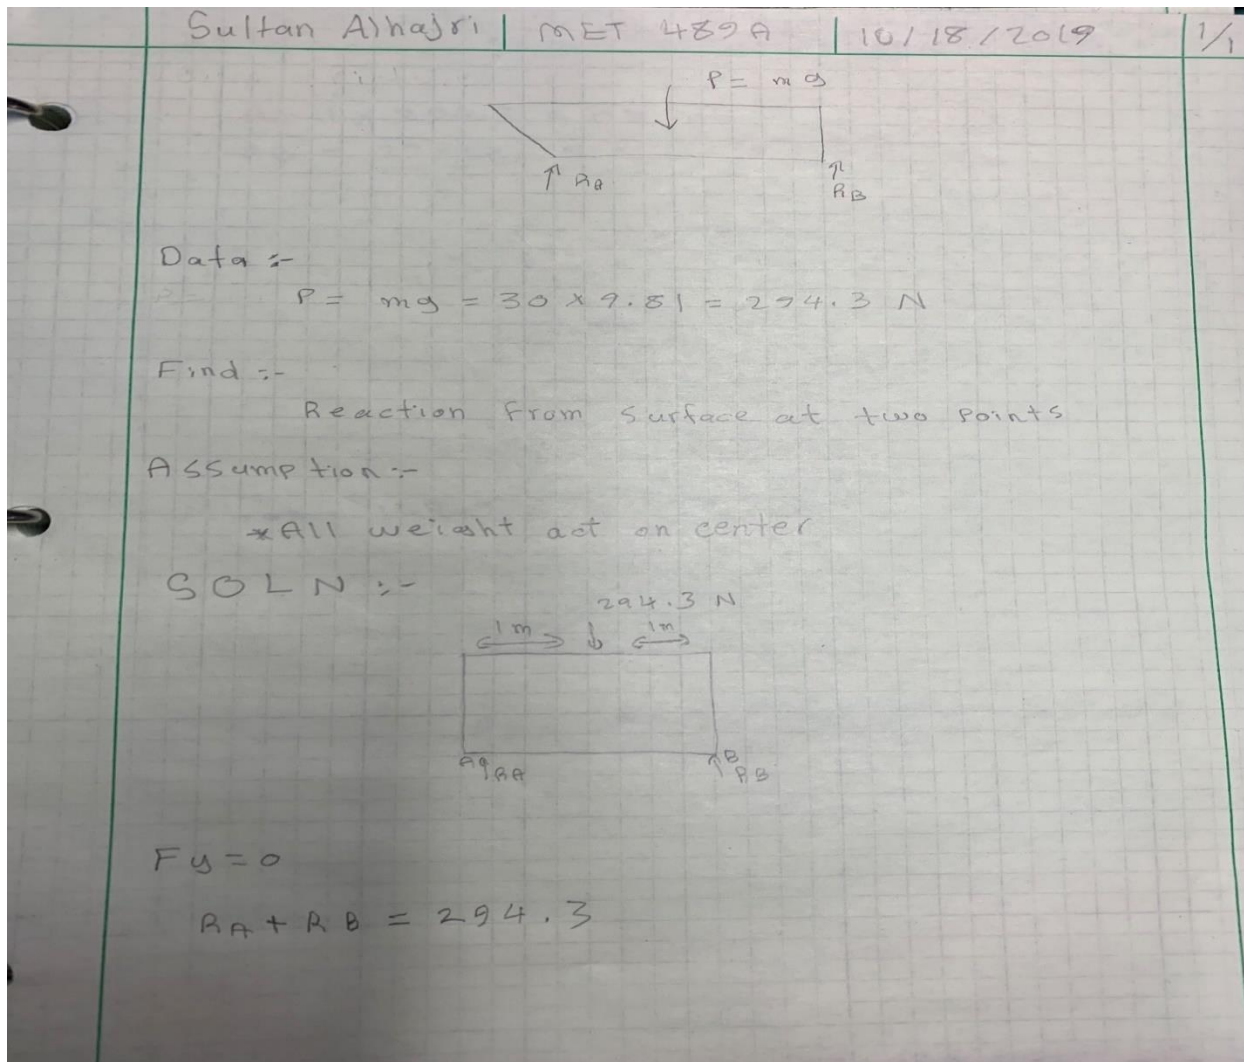 Sultan Alhajri | MET 489A | 10/18/2019 | 1/1
P = mg
RA
RB
Data :-
P = mg = 30 x 9.81 = 294.3 N
Find :-
Reaction From Surface at two points
Assumption :-
*All weight act on center
SOLN :-
294.3 N
1m 1m
A RA
B RB
Fy = 0
RA + RB = 294.3